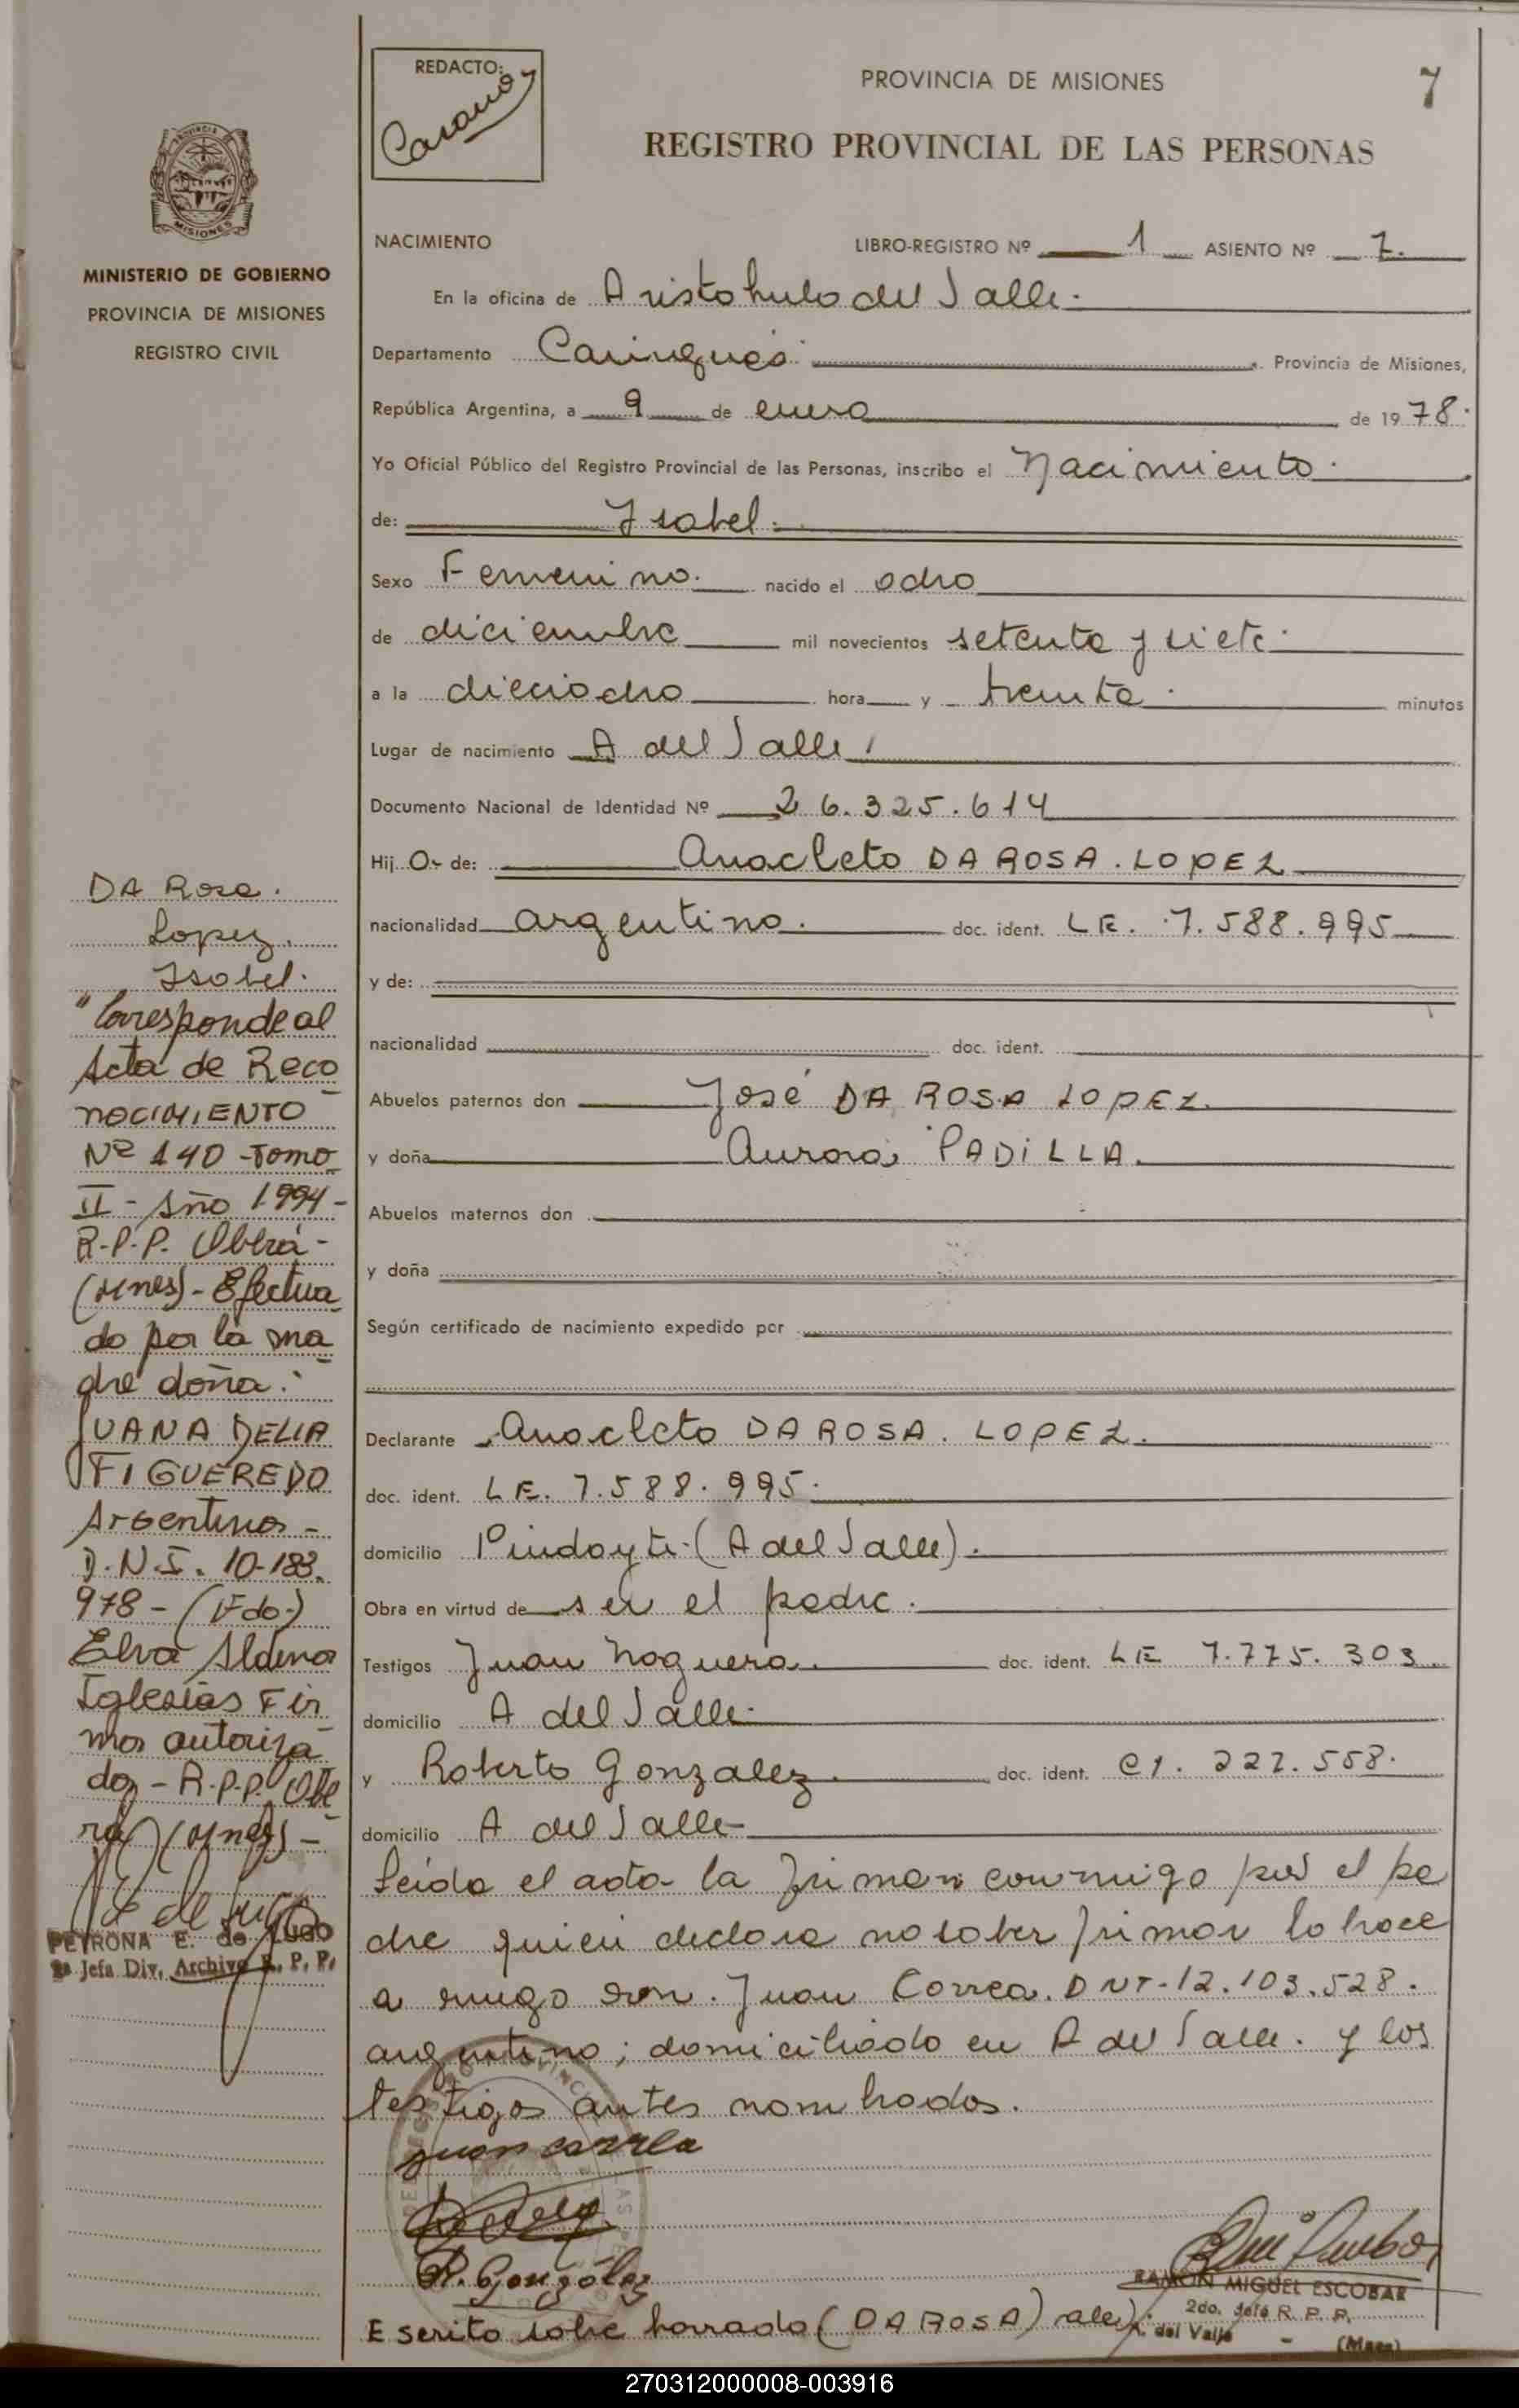 REDACTO:
PROVINCIA DE MISIONES
7
REGISTRO PROVINCIAL DE LAS PERSONAS
NACIMIENTO
LIBRO-REGISTRO Nº 1 ASIENTO Nº 7.
MINISTERIO DE GOBIERNO
PROVINCIA DE MISIONES
REGISTRO CIVIL
En la oficina de Aristobulo del Valle.
Departamento Cainguás. Provincia de Misiones,
República Argentina, a 9 de enero de 1978.
Yo Oficial Público del Registro Provincial de las Personas, inscribo el Nacimiento.
de: Isabel.
Sexo Femenino. nacido el ocho
de diciembre mil novecientos setenta y siete.
a la dieciocho hora y treinta. minutos
Lugar de nacimiento A del Valle
Documento Nacional de Identidad Nº 26.325.614
Hij a de: Anacleto DA ROSA. LOPEZ
nacionalidad argentino. doc. ident. LE. 7.588.995
y de:
nacionalidad doc. ident.
Abuelos paternos don José DA ROSA LOPEZ.
y doña Aurora PADILLA.
Abuelos maternos don
y doña
Según certificado de nacimiento expedido por
Declarante Anacleto DA ROSA. LOPEZ.
doc. ident. LE. 7.588.995.
domicilio Pindayti-(A del Valle).
Obra en virtud de ser el padre.
Testigos Juan Noguera. doc. ident. LE 7.775.303
domicilio A del Valle.
y Roberto Gonzalez. doc. ident. CI. 222.558.
domicilio A del Valle
Leida el acta la firman conmigo por el pa
dre quien declara no saber firmar lo hace
a ruego don. Juan Correa. DNI-12.103.528.
argentino; domiciliado en A del Valle. y los
testigos antes nombrados.
juan correa
R. González
RAMON MIGUEL ESCOBAR
2do. Jefe R. P. P.
A. del Valle - (Mnes)
Escrito sobre borrado (DA ROSA) vale).
DA Rosa.
Lopez.
Isabel.
"Corresponde al
Acta de Reco
nocIMIENTO
Nº 140 -Tomo
II - Año 1994-
R.P.P. Oberá-
(Mnes)- Efectua
do por la ma
dre doña:
JUANA DELIA
FIGUEREDO
Argentina-
D.N.I. 10-183.
978 - (Fdo.)
Elva Aldina
Iglesias Fir
ma autoriza
da - R.P.P. Obe
rá (Mnes)-
PETRONA E. de LUGO
Jefa Div. Archivo R. P. P.
270312000008-003916